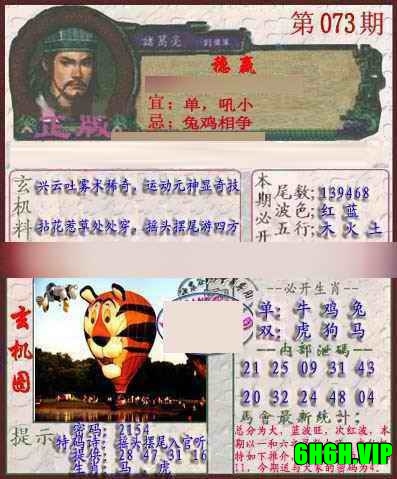 第073期
諸葛亮
穩贏
宜：单，吼小
忌：兔鸡相争
正版
玄机料
兴云吐雾术稀奇，运动元神显奇技
拈花惹草处处穿，摇头摆尾游四方
本期必开
尾数：139468
波色：红 蓝
五行：木 火 土
玄机图
--必开生肖--
单：牛 鸡 兔
双：虎 狗 马
--内部泄码--
21 25 09 31 43
20 32 24 48 04
馬會最新统计：
总分为大，蓝波旺，次红波，本
提示
密码：2154
特码诗：摇头摆尾入官听
提倍：28 47 31 16
生肖：马 虎
6HGH.VIP